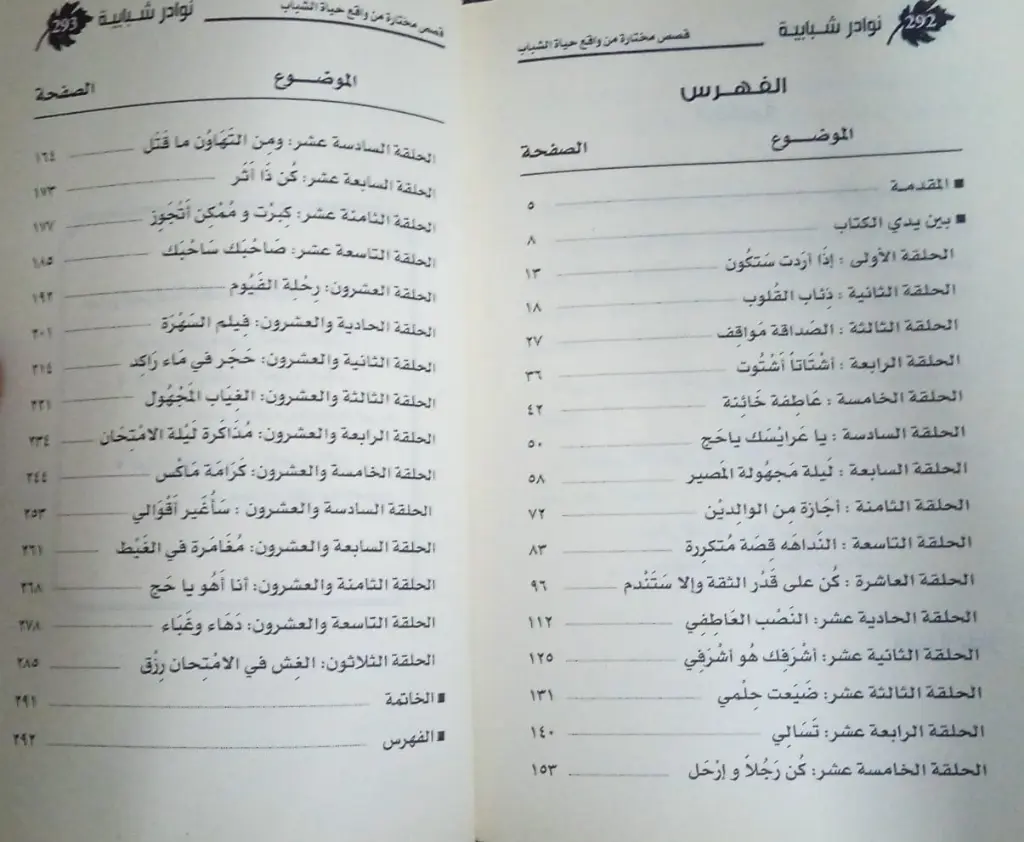 292 نوادر شبابية قصص مختارة من واقع حياة الشباب
الفهرس
الموضوع الصفحة
■ المقدمة ٥
■ بين يدي الكتاب ٨
الحلقة الأولى : إذَا أرَدت سَتكُون ١٣
الحلقة الثانية : ذِئاب القُلوب ١٨
الحلقة الثالثة : الصَداقة مَواقِف ٢٧
الحلقة الرابعة : أشْتَاتاً أَشْتُوت ٣٦
الحلقة الخامسة : عَاطِفة خَائِنة ٤٢
الحلقة السادسة : يا عَرايْسك ياحَج ٥٠
الحلقة السابعة : لَيلة مَجهُولة المَصير ٥٨
الحلقة الثامنة : أجَازة مِن الوالِديْن ٧٢
الحلقة التاسعة : النَداهَه قِصَة مُتكررة ٨٣
الحلقة العاشرة : كُن على قَدْر الثقة وإلا سَتَندم ٩٦
الحلقة الحادية عشر: النَصْب العَاطِفِي ١١٢
الحلقة الثانية عشر: أشْرَفِك هُو أشْرَفِي ١٢٥
الحلقة الثالثة عشر: ضَيَعت حِلْمي ١٣١
الحلقة الرابعة عشر: تَسَالِي ١٤٠
الحلقة الخامسة عشر: كُن رَجُلاً و إرْحَل ١٥٣
نوادر شبابية 293 قصص مختارة من واقع حياة الشباب
الموضوع الصفحة
الحلقة السادسة عشر: ومِن التَهَاوُن ما قَتَل ١٦٤
الحلقة السابعة عشر: كُن ذَا أثَر ١٧٣
الحلقة الثامنة عشر: كِبرْت و مُمْكِن أتْجَوِز ١٧٧
الحلقة التاسعة عشر: صَاحْبَك سَاحْبَك ١٨٥
الحلقة العشرون: رِحْلِة الفَيُوم ١٩٢
الحلقة الحادية والعشرون: فِيلم السَهْرَة ٢٠١
الحلقة الثانية والعشرون: حَجَر في مَاء رَاكِد ٢١٤
الحلقة الثالثة والعشرون: الغِيَاب المَجْهُول ٢٢١
الحلقة الرابعة والعشرون: مُذَاكرة لَيْلة الامْتِحَان ٢٣٤
الحلقة الخامسة والعشرون: كَرَامَة مَاكْس ٢٤٤
الحلقة السادسة والعشرون : سَأُغَير أقْوَالي ٢٥٣
الحلقة السابعة والعشرون: مُغَامَرة في الغَيْط ٢٦١
الحلقة الثامنة والعشرون: أنا أهُو يا حَج ٢٦٨
الحلقة التاسعة والعشرون: دَهَاء وغَبَاء ٢٧٨
الحلقة الثلاثون: الغِش في الامْتِحان رِزْق ٢٨٥
■ الخاتمة ٢٩١
■ الفهرس ٢٩٢